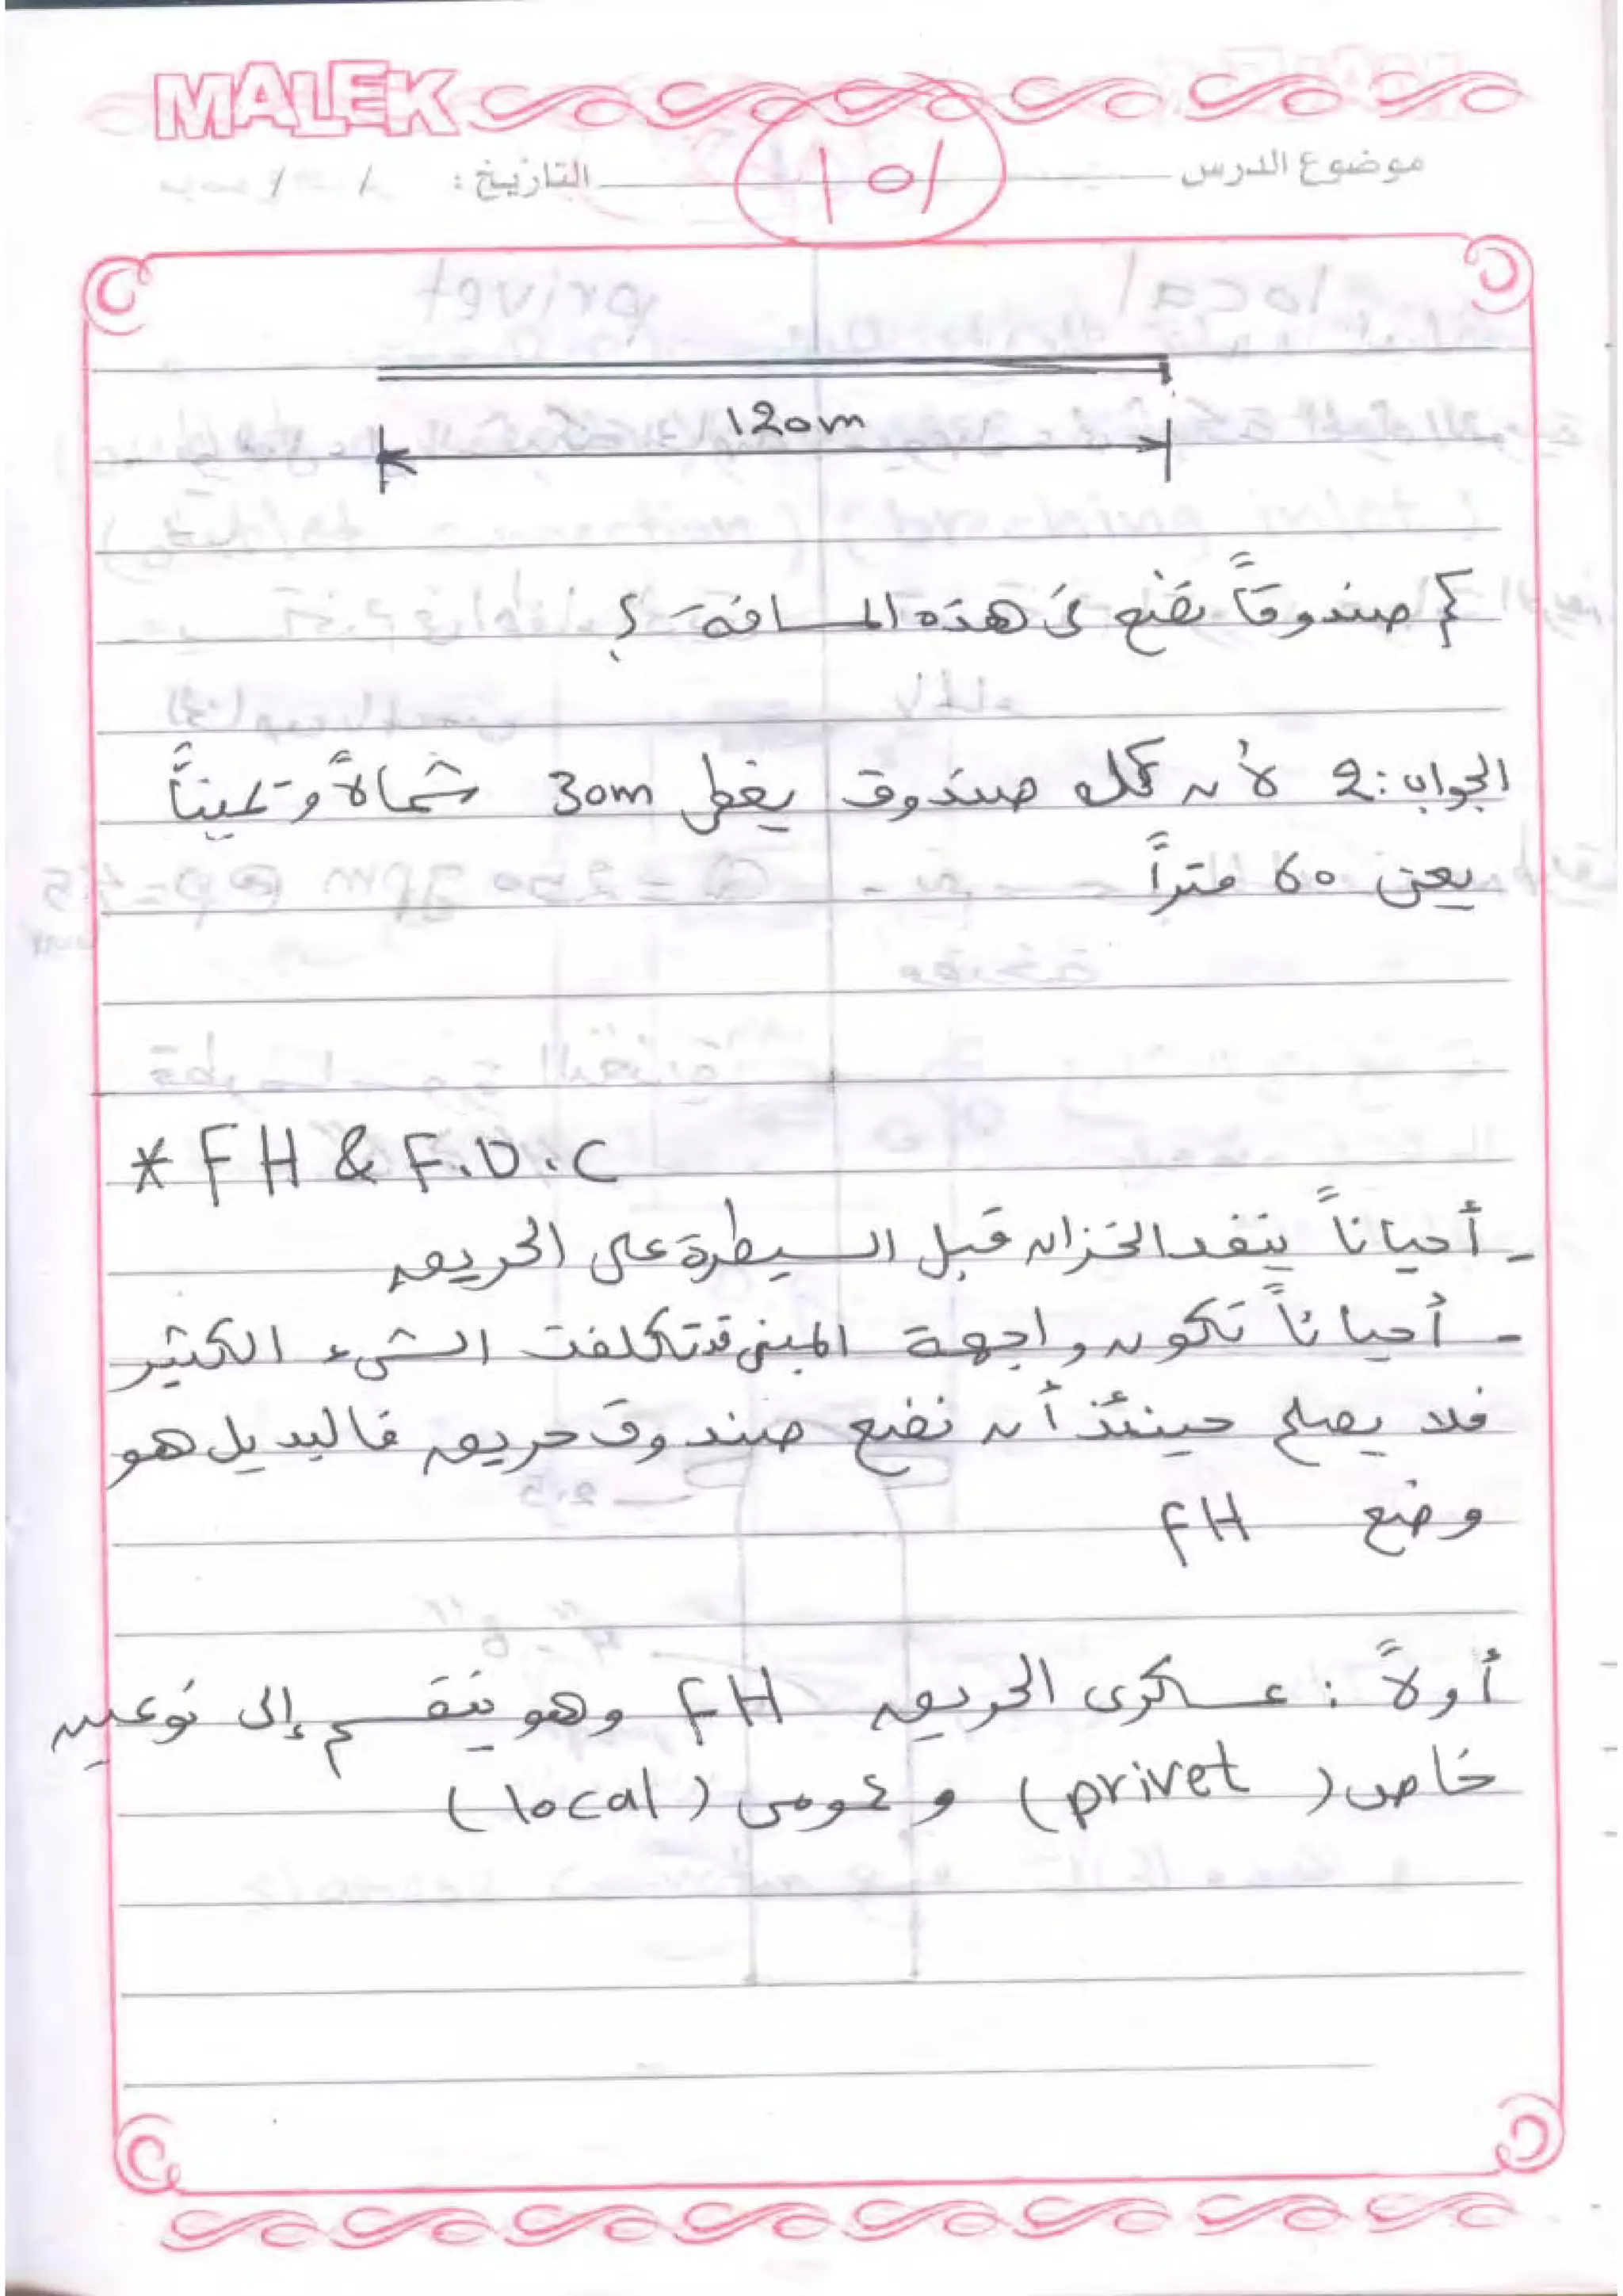 MALEK
موضوع الدرس
101
التاريخ: / /
120m
كم صندوقاً نضع في هذه المسافة؟
الجواب: 2 لأن كل صندوق يغطي 30m شمالاً و يميناً
يعني 60 متراً
* FH & F.D.C
- أحياناً ينفد الخزان قبل السيطرة على الحريق
- أحياناً تكون واجهة المبنى قد تكلفت الشيء الكثير
فلا يصلح حينئذ أن نضع صندوق حريق فالبديل هو
وضع FH
أولاً: عسكري الحريق FH وهو ينقسم إلى نوعين
خاص (privet) و عمومي (local)